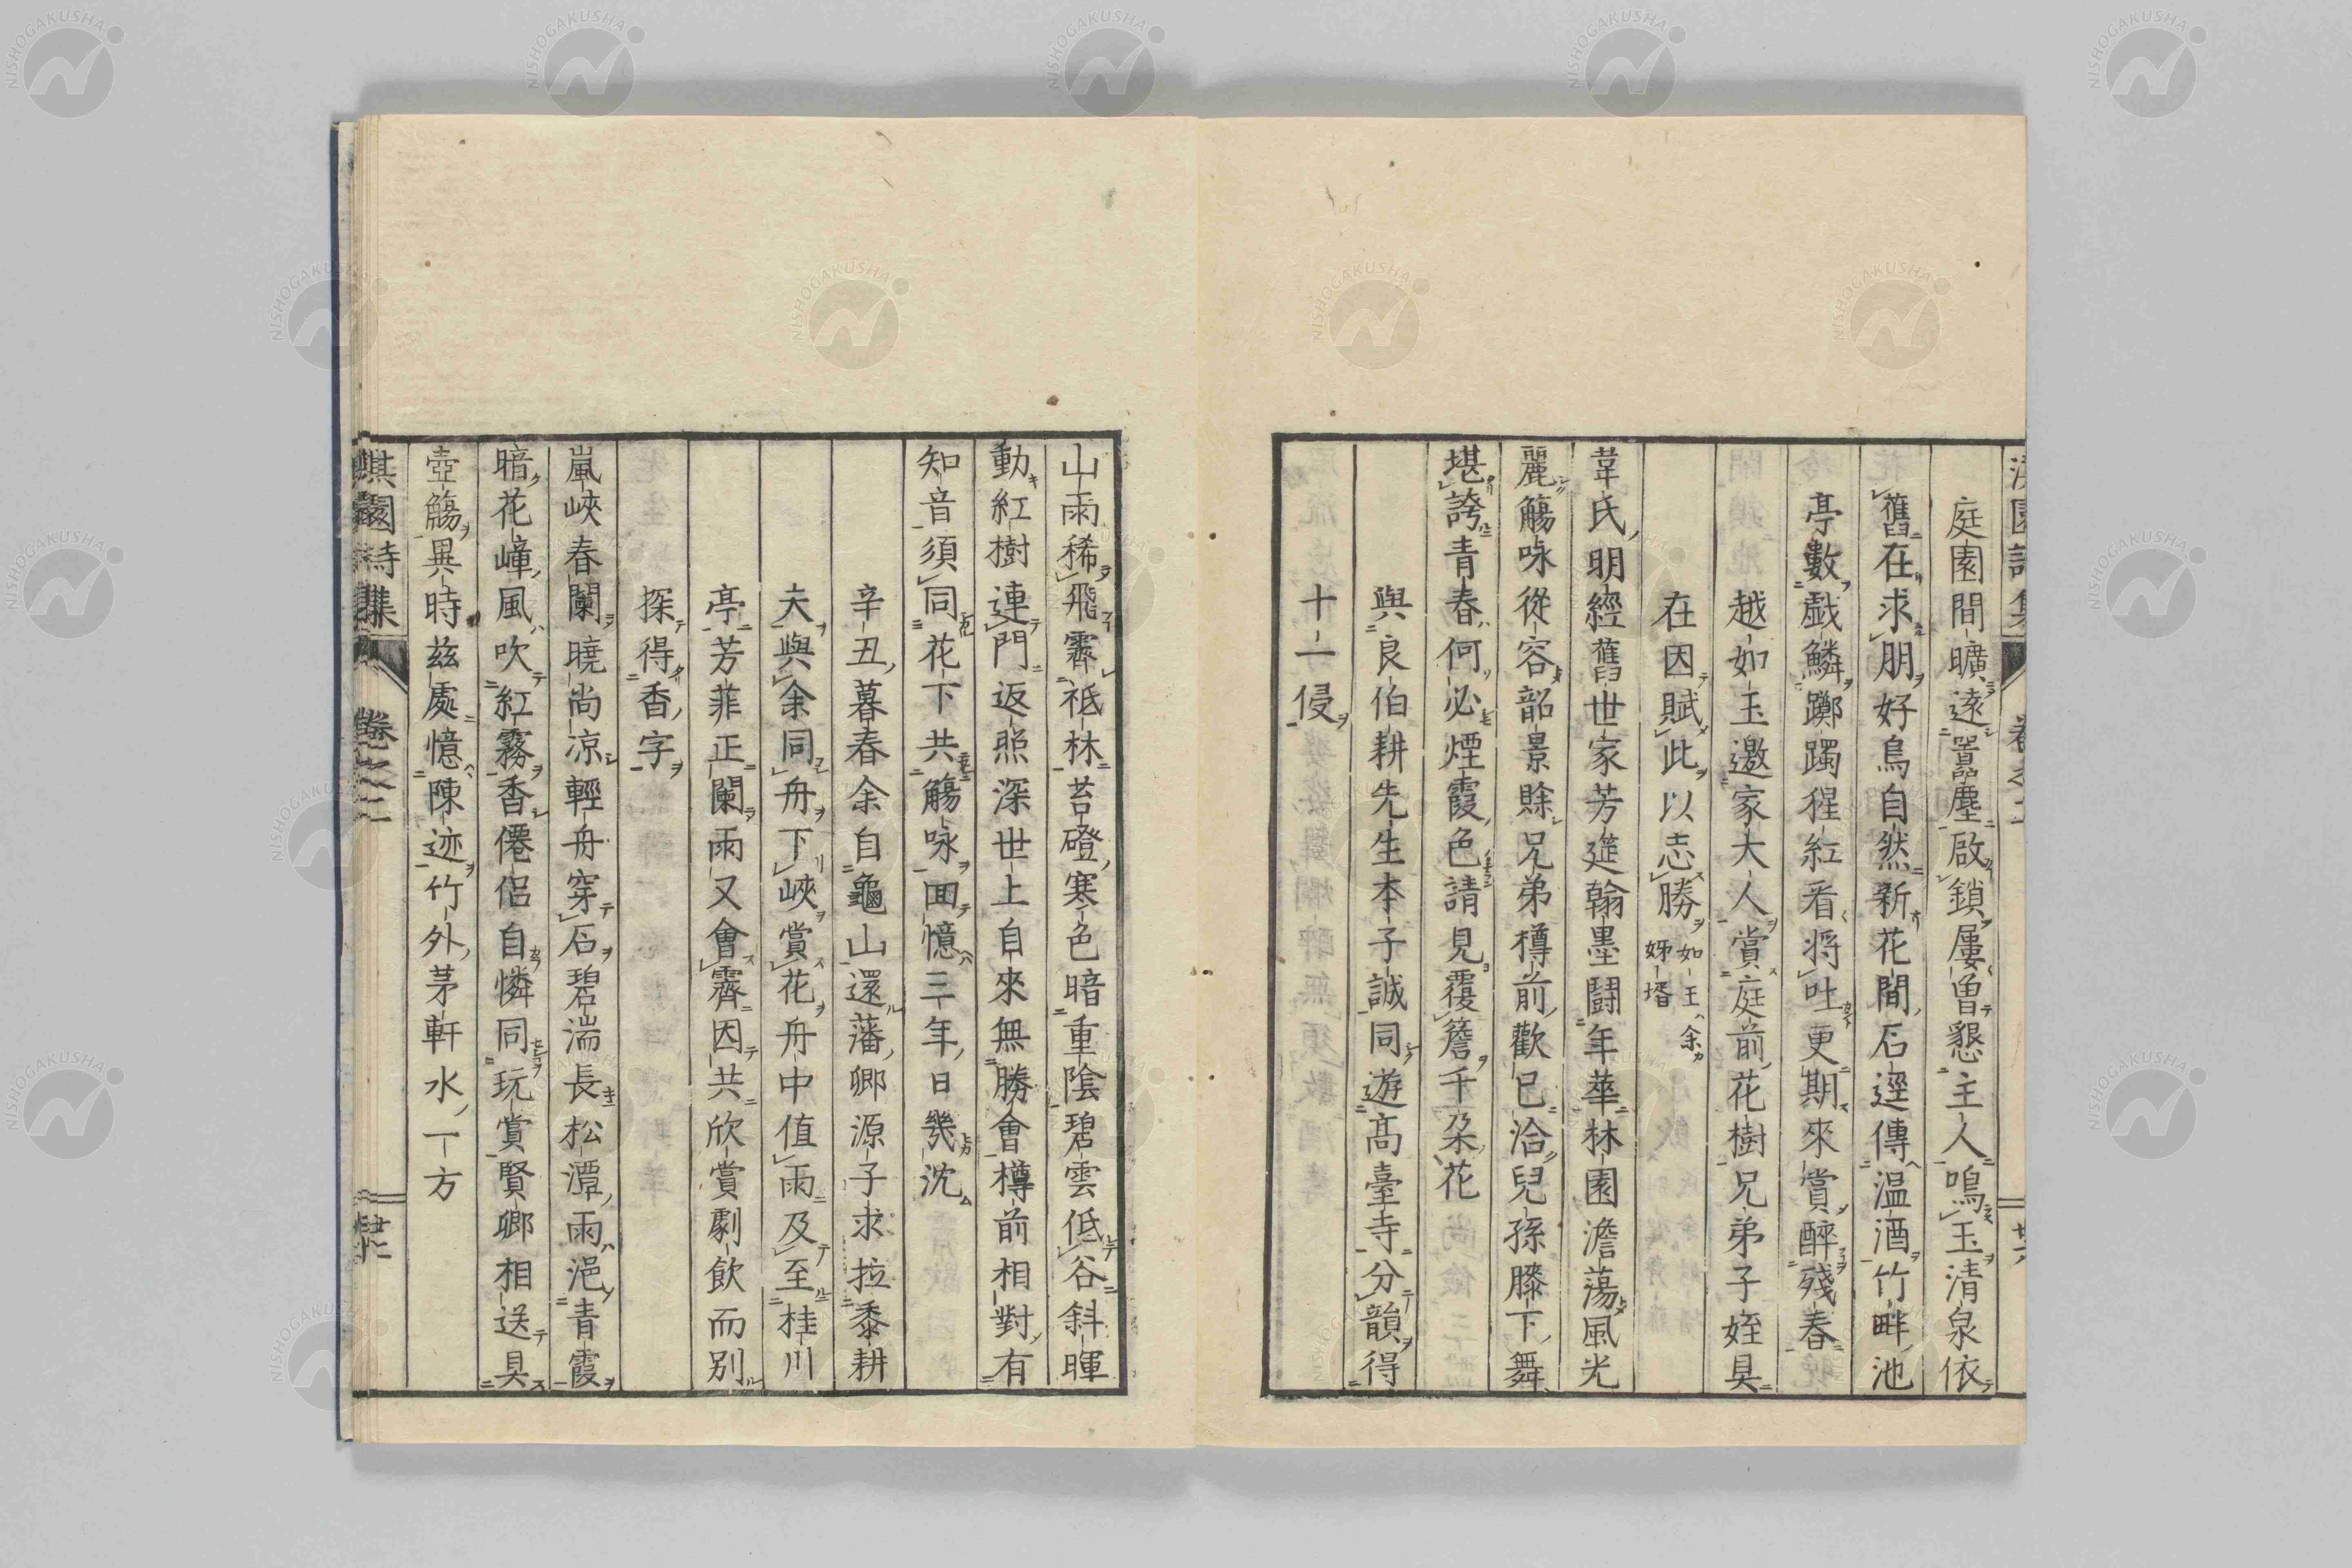 庭園間曠遠囂塵啟鎖屢曾懇主人鳴玉清泉依
舊在求朋好鳥自然新花間石逕傳温酒竹畔池
亭數戯鱗躑躅猩紅看將吐更期來賞醉殘春
越如玉邀家大人賞庭前花樹兄弟子姪具
在因賦此以志勝
如王余
姊壻
韋氏明經舊世家芳筵翰墨鬪年華林園澹蕩風光
麗觴咏從容韶景賖兄弟樽前歡已洽兒孫膝下舞
堪誇青春何必煙霞色請見覆簷千朶花
與良伯耕先生本子誠同遊髙臺寺分韻得
十二侵
山雨稀飛霽祗林苔磴寒色暗重陰碧雲低谷斜暉
動紅樹連門返照深世上自來無勝會樽前相對有
知音須同花下共觴咏回憶三年日幾沈
辛丑暮春余自龜山還藩卿源子求拉黍耕
夫與余同舟下峽賞花舟中值雨及至桂川
亭芳菲正闌雨又會霽因共欣賞劇飲而別
探得香字
嵐峽春闌曉尚凉輕舟穿石碧湍長松潭雨浥青霞
暗花嶂風吹紅霧香僊侶自憐同玩賞賢卿相送具
壺觴異時兹處憶陳迹竹外茅軒水一方
淇園詩集
卷之二